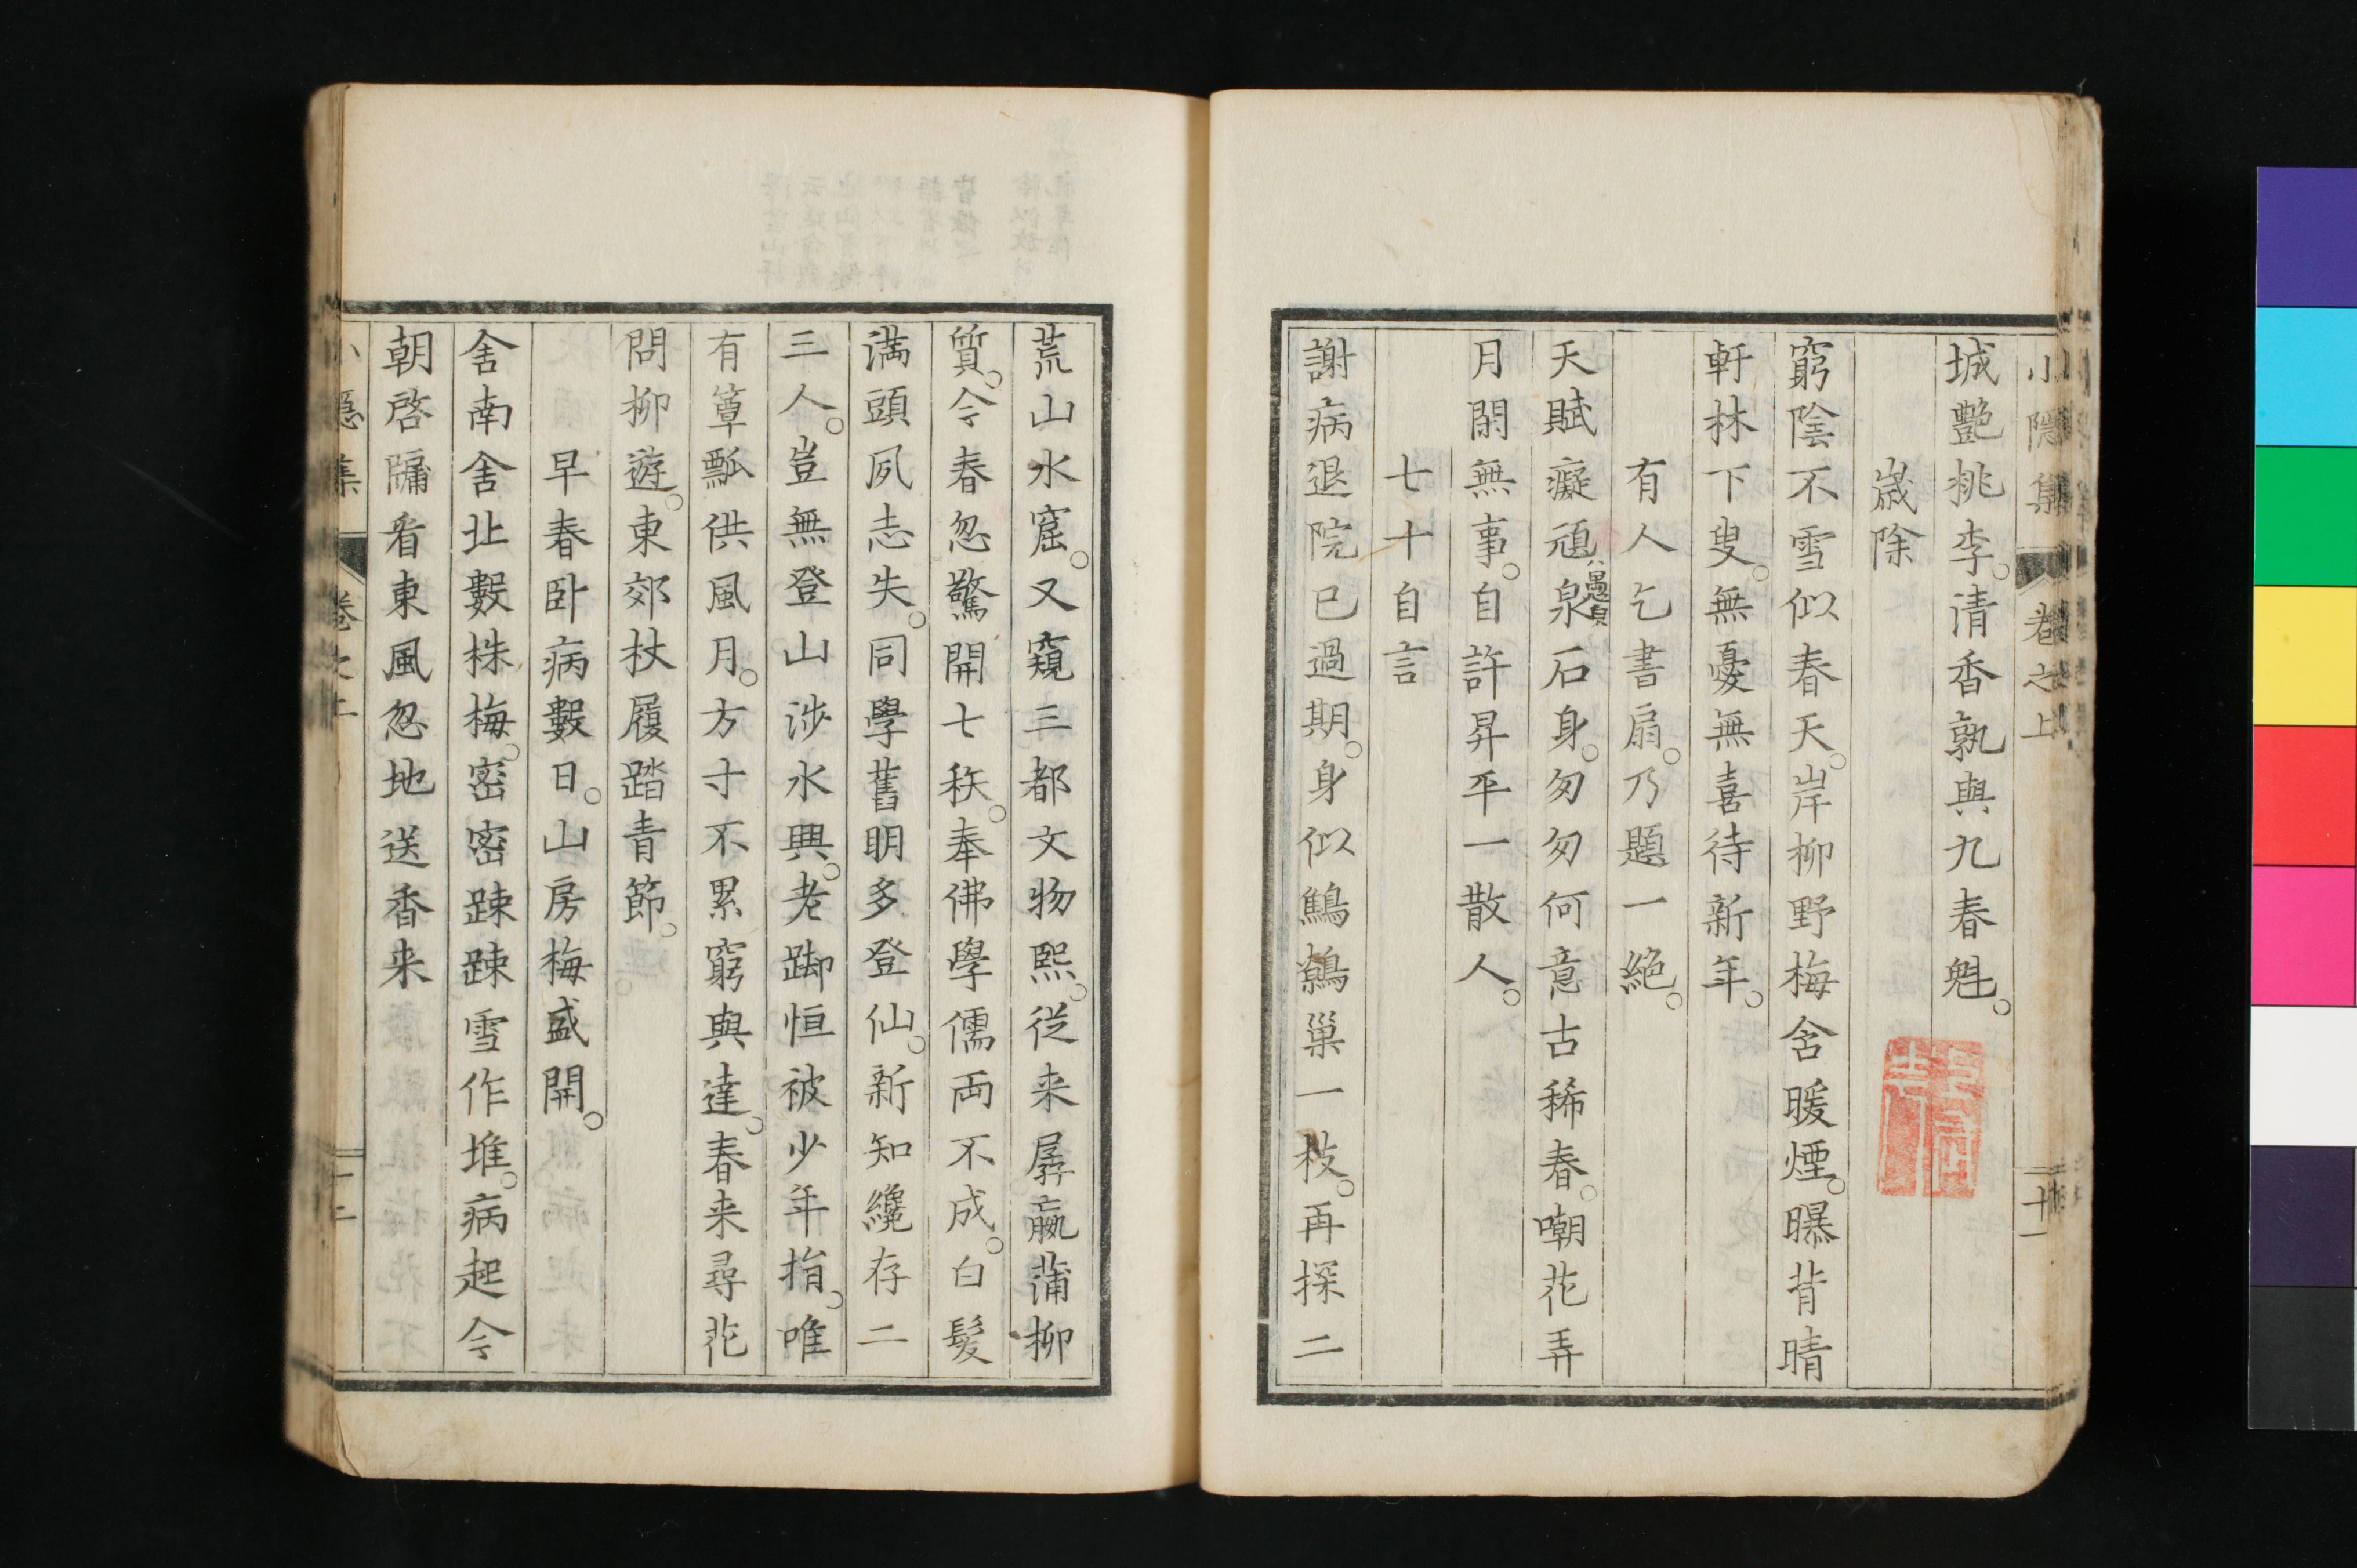 小隱集 卷之上 十一
城艷桃李。清香孰與九春魁。
歲除
窮陰不雪似春天。岸柳野梅含暖煙。曝背晴
軒林下叟。無憂無喜待新年。
有人乞書扇。乃題一絕。
天賦癡頑泉石身。匆匆何意古稀春。嘲花弄
月閑無事。自許昇平一散人。
七十自言
謝病退院已過期。身似鷦鷯巢一枝。再探二
荒山水窟。又窺三都文物熙。從来孱羸蒲柳
質。今春忽驚開七秩。奉佛學儒両不成。白髮
満頭夙志失。同學舊朙多登仙。新知纔存二
三人。豈無登山涉水興。老踋恒被少年指。唯
有簞瓢供風月。方寸不累窮與達。春来尋花
問柳遊。東郊杖履踏青節。
早春臥病數日。山房梅盛開。
舍南舍北數株梅。密密踈踈雪作堆。病起今
朝啓牖看東風忽地送香来